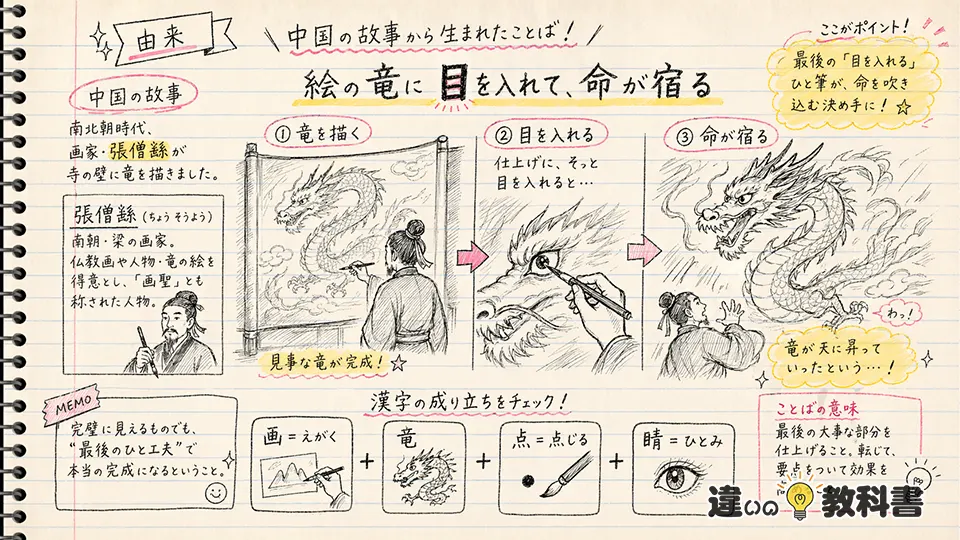 由来
中国の故事から生まれたことば！
絵の竜に目を入れて、命が宿る
ここがポイント！
最後の「目を入れる」
ひと筆が、命を吹き
込む決め手に！☆
中国の故事
南北朝時代、
画家・張僧繇が
寺の壁に竜を描きました。
張僧繇（ちょう そうよう）
南朝・梁の画家。
仏教画や人物・竜の絵を
得意とし、「画聖」とも
称された人物。
① 竜を描く
見事な竜が完成！
② 目を入れる
仕上げに、そっと
目を入れると…
③ 命が宿る
わっ！
竜が天に昇って
いったという…！
MEMO
完璧に見えるものでも、
“最後のひと工夫”で
本当の完成になるということ。
漢字の成り立ちをチェック！
画＝えがく
+
竜
+
点＝点じる
+
睛＝ひとみ
ことばの意味
最後の大事な部分を
仕上げること。転じて、
要点をついて効果を
違いの教科書